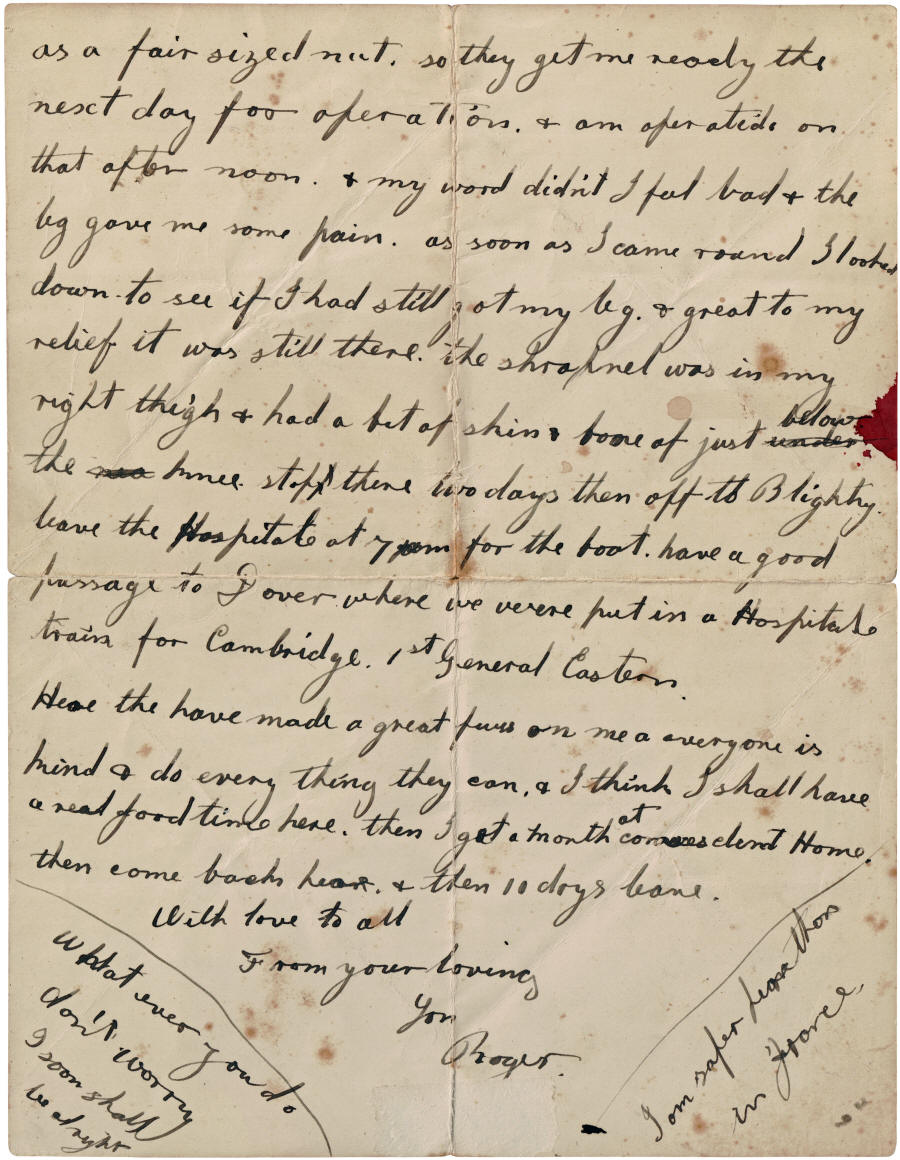 as a fair sized nut. so they get me ready the
next day for operation. & am operatide on
that after noon. & my word didn't I feel bad & the
leg gave me some pain. as soon as I came round I looked
down to see if I had still got my leg. & great to my
relief it was still there. the shrapnel was in my
right thigh & had a bit of skin & bone of just under below
the knee. stopt there two days then off to Blighty.
leave the Hospitale at 7 pm for the boat. have a good
passage to Dover where we were put in a Hospitale
train for Cambridge. 1st General Eastern.
Here the have made a great fuss on me a everyone is
kind & do every thing they can, & I think I shall have
a real good time here. then I get a month at Home.
then come back hear. & then 10 days leave.
With love to all
From your loving
Son
Roger.
What ever you do
don't worry
I soon shall
be alright
I am safer hear than
in France.